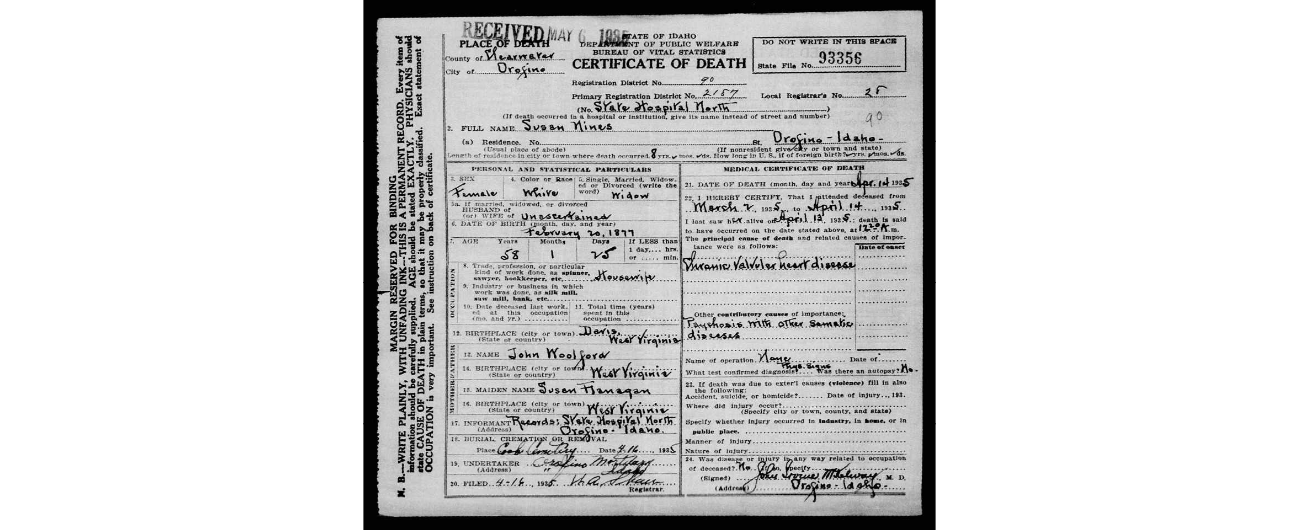 RECEIVED MAY 6 1935
STATE OF IDAHO
DEPARTMENT OF PUBLIC WELFARE
BUREAU OF VITAL STATISTICS
CERTIFICATE OF DEATH
DO NOT WRITE IN THIS SPACE
State File No. 93356
PLACE OF DEATH
County of Clearwater
City of Orofino
Registration District No. 90
Primary Registration District No. 2187 Local Registrar's No. 25
(No. State Hospital North)
(If death occurred in a hospital or institution, give its name instead of street and number)
90
2. FULL NAME Susan Hines
(a) Residence. No. St. Orofino - Idaho -
(Usual place of abode) (If nonresident give city or town and state)
Length of residence in city or town where death occurred. 8 yrs. mos. ds. How long in U. S., if of foreign birth? yrs. mos. ds.
PERSONAL AND STATISTICAL PARTICULARS
3. SEX 4. Color or Race 5. Single, Married, Widowed or Divorced (write the word)
Female White Widow
5a. If married, widowed, or divorced
HUSBAND of
(or) WIFE of Unascertained
6. DATE OF BIRTH (month, day, and year)
February 20, 1877
7. AGE Years Months Days If LESS than
58 1 25 1 day, hrs.
or min.
OCCUPATION
8. Trade, profession, or particular
kind of work done, as spinner,
sawyer, bookkeeper, etc. Housewife
9. Industry or business in which
work was done, as silk mill,
saw mill, bank, etc.
10. Date deceased last worked at this occupation (mo. and yr.)
11. Total time (years) spent in this occupation
12. BIRTHPLACE (city or town) Davis,
(State or country) West Virginia
FATHER
13. NAME John Woolford
14. BIRTHPLACE (city or town)
(State or country) West Virginia
MOTHER
15. MAIDEN NAME Susan Flanagan
16. BIRTHPLACE (city or town)
(State or country) West Virginia
17. INFORMANT Records: State Hospital North
(Address) Orofino - Idaho.
18. BURIAL, CREMATION OR REMOVAL
Place Cemetery Date 4-16, 1935
19. UNDERTAKER Orofino Mortuary
(Address) " Idaho
20. FILED 4-16, 1935
Registrar.
MEDICAL CERTIFICATE OF DEATH
21. DATE OF DEATH (month, day and year) Apr. 14 1935
22. I HEREBY CERTIFY, That I attended deceased from
March 2, 1935, to April 14, 1935.
I last saw her alive on April 13, 1935; death is said
to have occurred on the date stated above, at 12:20 A. m.
The principal cause of death and related causes of importance were as follows:
Date of onset
Chronic Valvular heart disease
Other contributory causes of importance:
Psychosis with other Somatic
diseases
Name of operation None Date of
What test confirmed diagnosis? Phys. Signs Was there an autopsy? No.
23. If death was due to exter'l causes (violence) fill in also
the following:
Accident, suicide, or homicide? Date of injury, 193
Where did injury occur?
(Specify city or town, county, and state)
Specify whether injury occurred in industry, in home, or in
public place.
Manner of injury
Nature of injury
24. Was disease or injury in any way related to occupation
of deceased? No If so, specify
(Signed) John M. D.
(Address) Orofino - Idaho -
MARGIN RESERVED FOR BINDING
N. B.—WRITE PLAINLY, WITH UNFADING INK—THIS IS A PERMANENT RECORD. Every item of
information should be carefully supplied. AGE should be stated EXACTLY. PHYSICIANS should
state CAUSE OF DEATH in plain terms, so that it may be properly classified. Exact statement of
OCCUPATION is very important. See instruction on back of certificate.